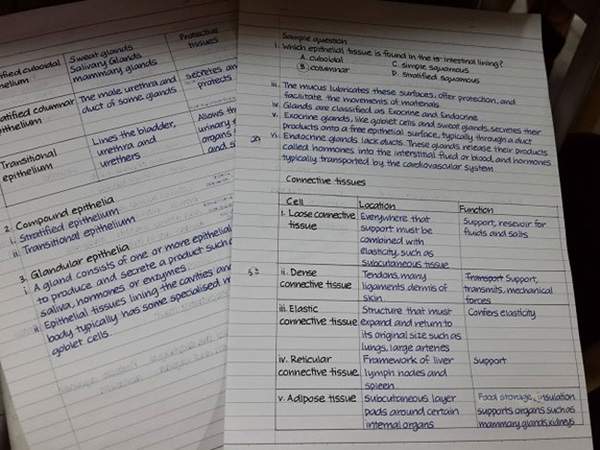 fied cuboidal
helium
Sweat glands
Salivary Glands
mammary glands
Protective
tissues
atified columnar
pithelium
The male urethra and
duct of some glands
secretes an
protects
Transitional
epithelium
Lines the bladder,
urethra and
urethers
Allows th
urinary
organs
and s
2. Compound epithelia
i. Stratified epithelium
ii. Transitional epithelium
3. Glandular epithelia
i. A gland consists of one or more epithelial
to produce and secrete a product such
saliva, hormones or enzymes.
ii. Epithelial tissues lining the cavities and
body typically has some specialised
goblet cells.
Sample question
1. Which epithelial tissue is found in the intestinal lining?
A. cuboidal C. simple squamous
B. columnar D. stratified squamous
iii. The mucus lubricates these surfaces, offer protection, and
facilitate the movements of materials
iv. Glands are classified as Exocrine and Endocrine
v. Exocrine glands, like goblet cells and sweat glands, secretes their
products onto a free epithelial surface, typically through a duct
vi. Endocrine glands lack ducts. These glands release their products
called hormones into the interstitial fluid or blood, and hormones
typically transported by the cardiovascular system
Connective tissues
Cell Location Function
i. Loose connective
tissue
Everywhere that
support must be
combined with
elasticity, such as
subcutaneous tissue
Support, resevoir for
fluids and salts
ii. Dense
connective tissue
Tendons, many
ligaments dermis of
skin
Transport Support,
transmits, mechanical
forces
iii. Elastic
connective tissue
Structure that must
expand and return to
its original size such as
lungs, large arteries
Confers elasticity
iv. Reticular
connective tissue
Framework of liver
lymph nodes and
spleen
Support
v. Adipose tissue
Subcutaneous layer
pads around certain
internal organs
Food storage, insulation
supports organs such as
mammary glands, kidneys